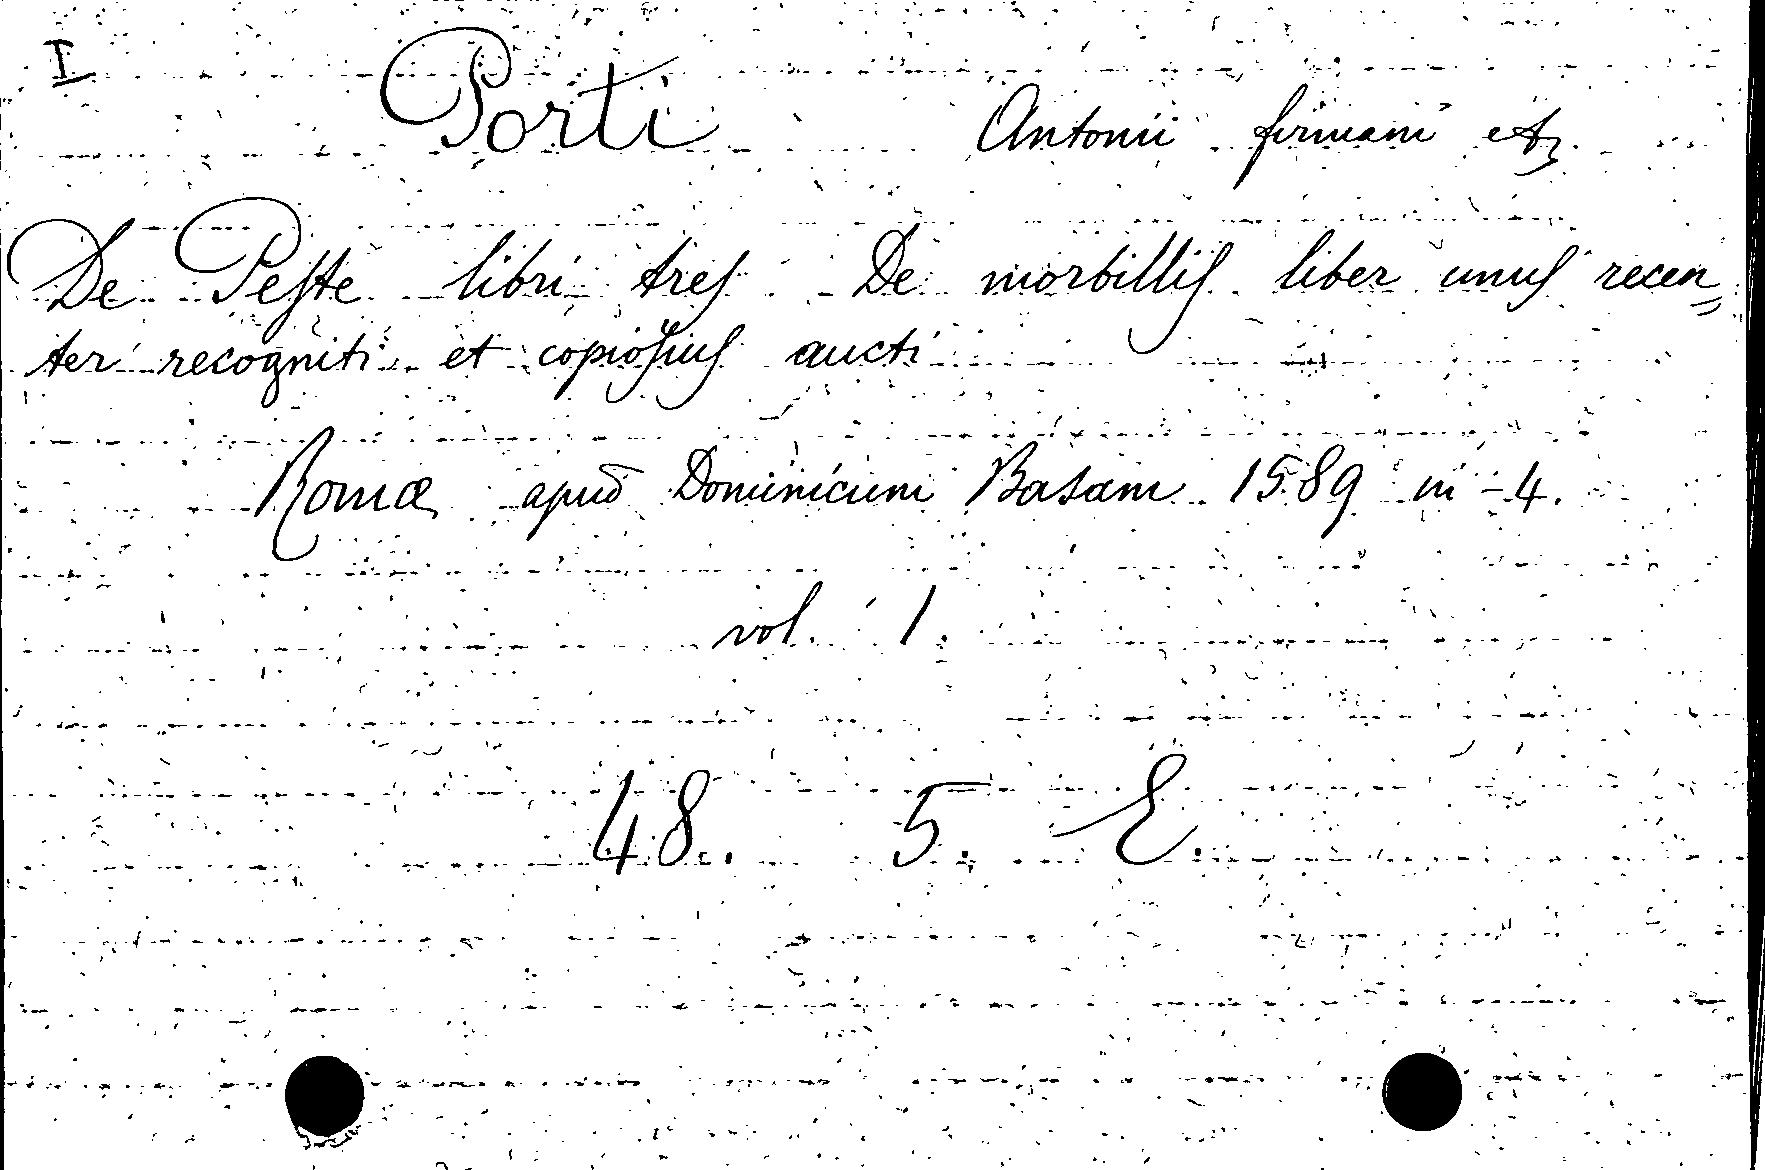 I
Porti Antonii firmani etz.
De Peste libri tres De morbillis liber unus recen=
ter recogniti et copiosius aucti
Romæ apud Dominicum Basam 1589 in-4.
vol. 1.
48. 5. E.